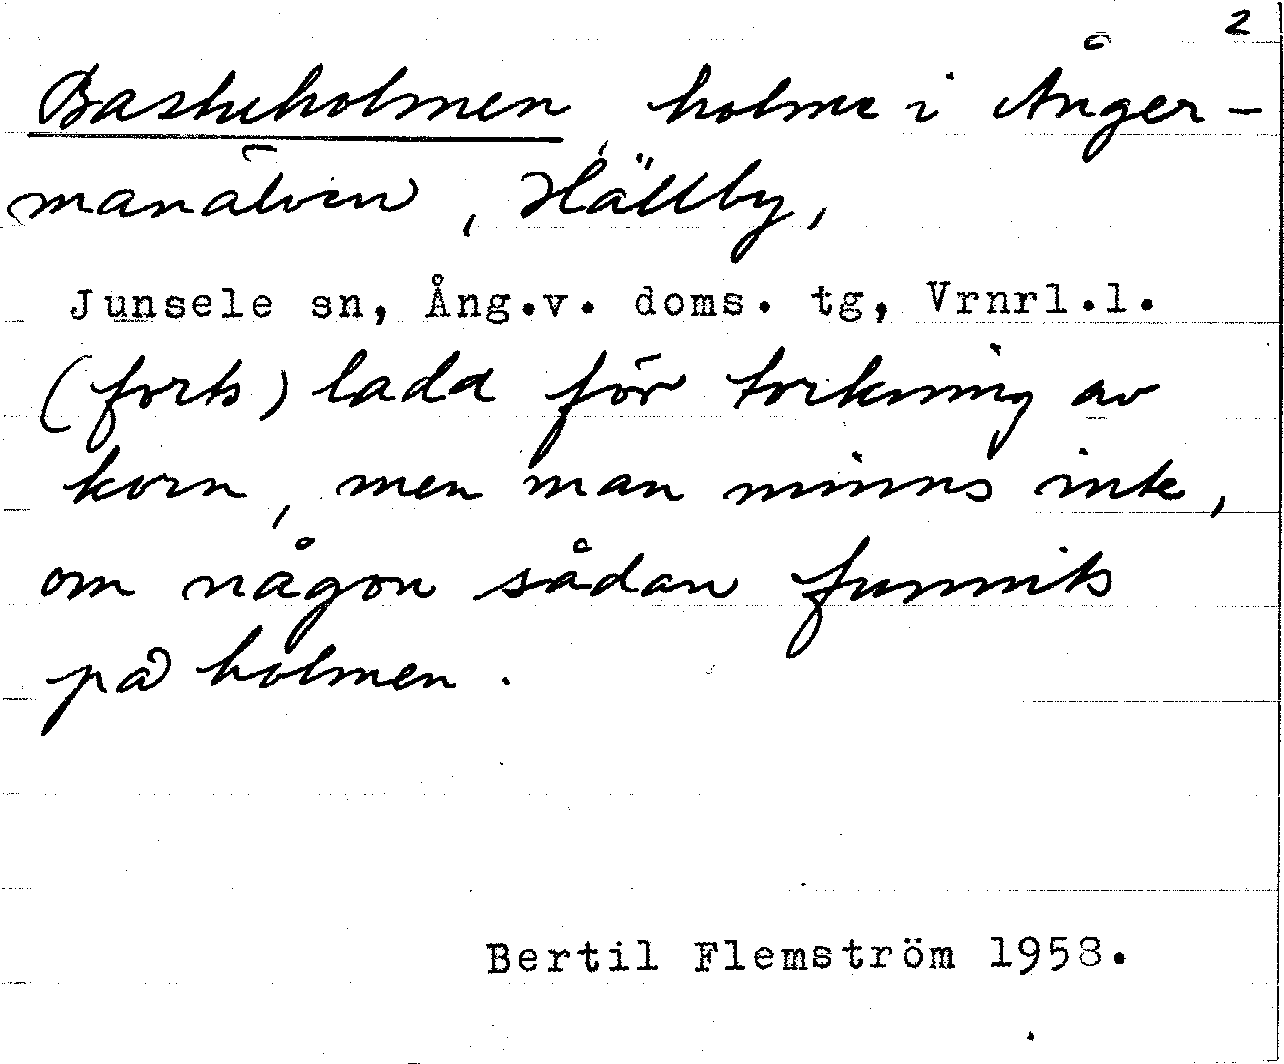 2
Bastuholmen, holme i Ånger-
manälven, Hällby,
Junsele sn, Ång.v. doms. tg, Vrnrl.l.
(forts) lada för torkning av
korn, men man minns inte,
om någon sådan funnits
på holmen.
Bertil Flemström 1958.